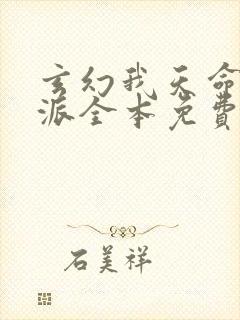 玄幻我天命
派全本免费
石美祥